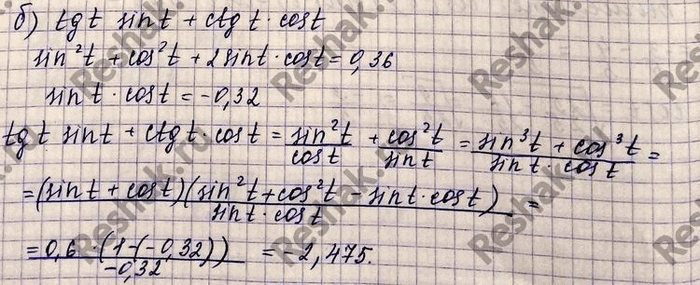 б) tg t sin t + ctg t · cos t
sin²t + cos²t + 2 sin t · cos t = 0,36
sin t · cos t = -0,32
tg t sin t + ctg t · cos t = sin²t/cos t + cos²t/sin t = (sin³t + cos³t)/(sin t · cos t) =
= (sin t + cos t)(sin²t + cos²t - sin t · cos t)/(sin t · cos t) =
= 0,6 · (1-(-0,32))/-0,32 = -2,475.
Reshak.ru